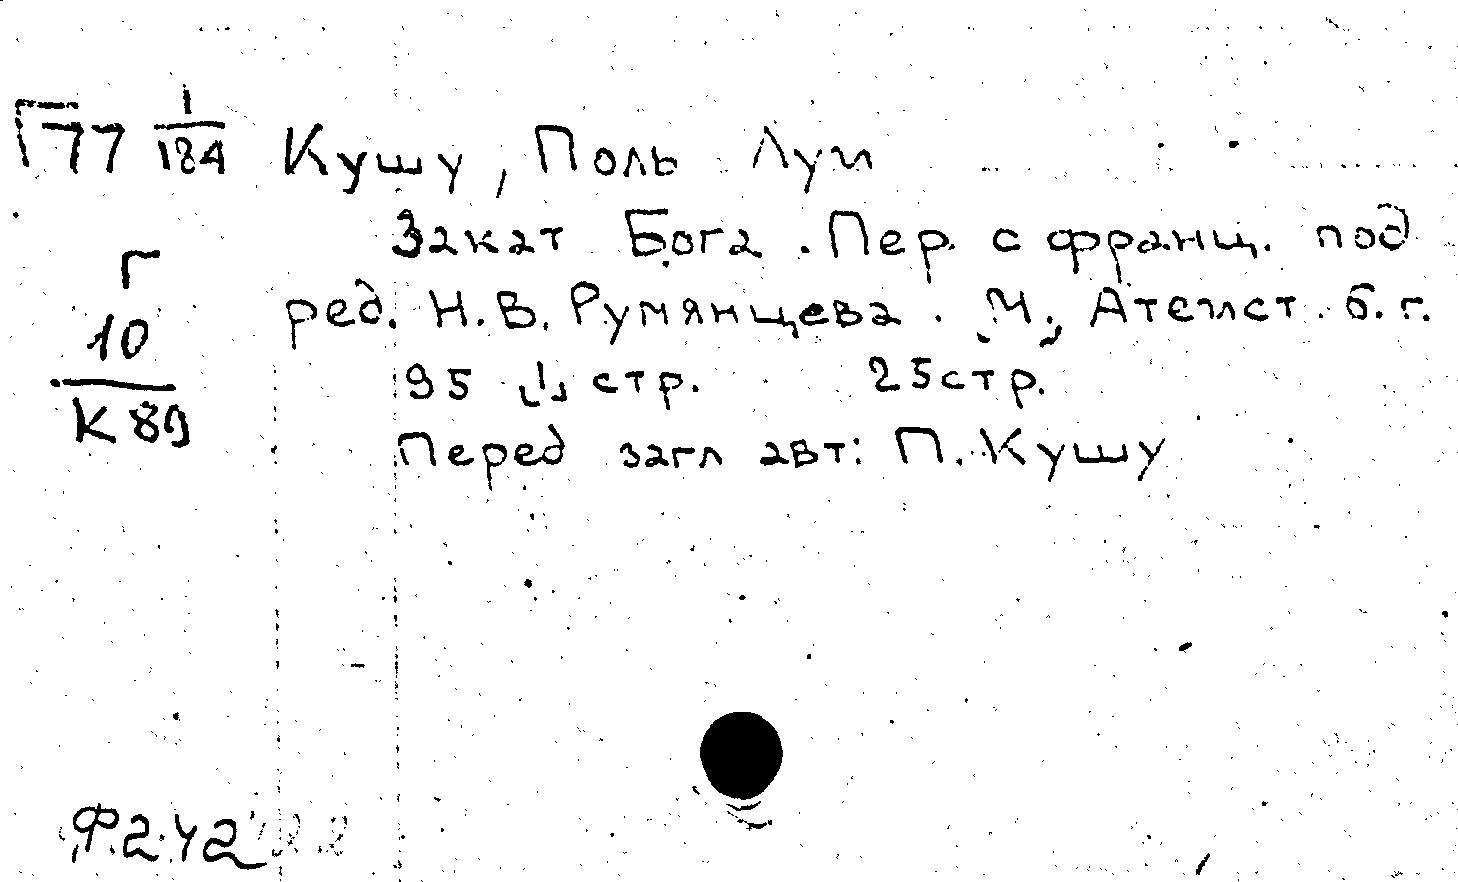 Г77 1/184 Кушу, Поль Луи
Закат Бога. Пер. с франц. под
ред. Н.В. Румянцева. М., Атеист б. г.
95 [1] стр. 25 стр.
Перед загл авт: П. Кушу
Г
10
К 89